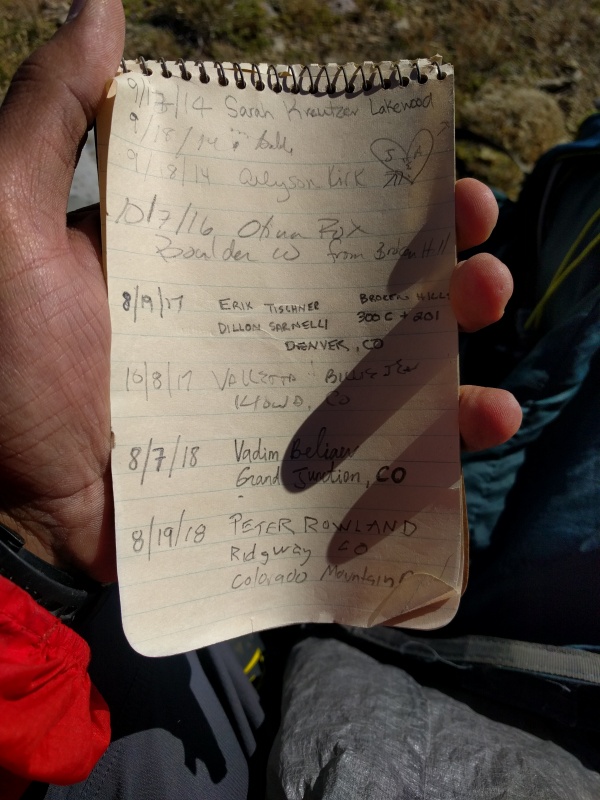 9/17/14 Sarah Kreutzer Lakewood
9/18/14
9/18/14 Kirk
10/7/16
Boulder CO from Broken Hill
8/19/17 ERIK TISCHNER BROKEN HILL
DILLON SARNELLI 300 C + 201
DENVER, CO
10/8/17
KIOWA, CO
8/7/18 Vadim Beliaev
Grand Junction, CO
8/19/18 PETER ROWLAND
Ridgway CO
Colorado Mountain